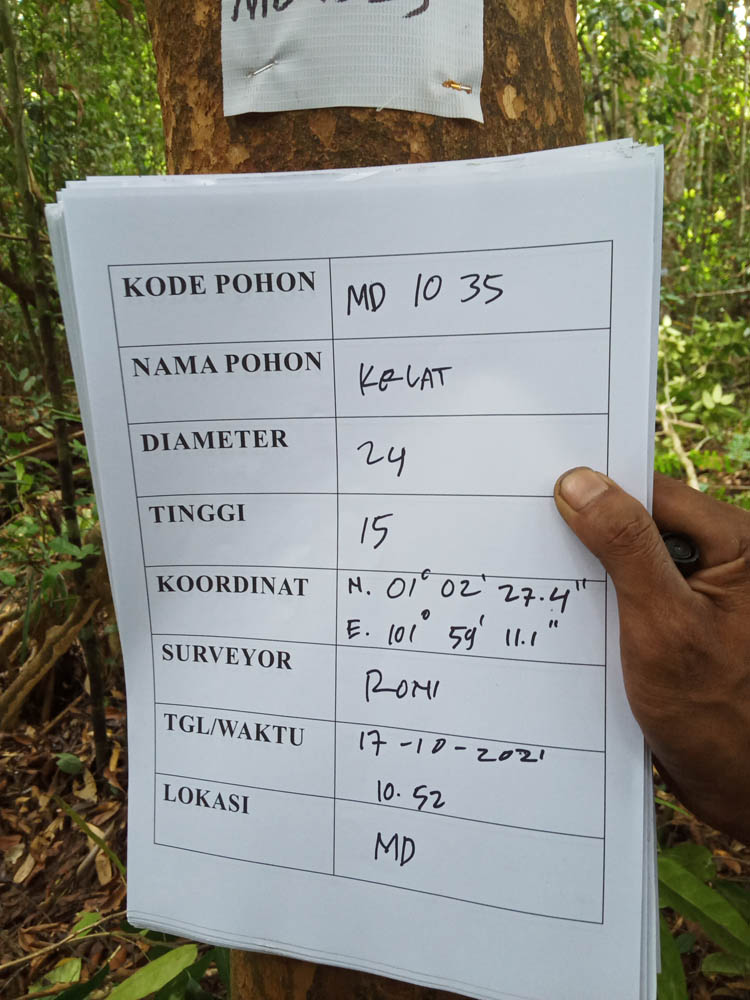 KODE POHON MD 10 35
NAMA POHON KELAT
DIAMETER 24
TINGGI 15
KOORDINAT N. 01° 02' 27.4"
E. 101° 59' 11.1"
SURVEYOR ROMI
TGL/WAKTU 17-10-2021
10.52
LOKASI MD